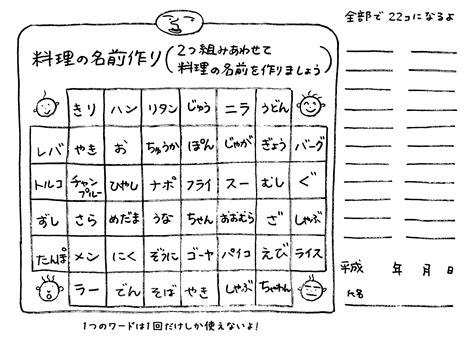 全部で22コになるよ
料理の名前作り(2つ組みあわせて
料理の名前を作りましょう)
きり ハン リタン じゅう ニラ うどん
レバ やき お ちゅうか ぽん じゃが ぎょう バーグ
トルコ チャンプルー ひやし ナポ フライ スー むし ぐ
ずし さら めだま うな ちゃん おおむら ざ しゃぶ
たんぽ メン にく ぞうに ゴーヤ パイコ えび ライス
ラー でん そば やき しゃぶ ちゃわん
1つのワードは1回だけしか使えないよ!
平成 年 月 日
氏名